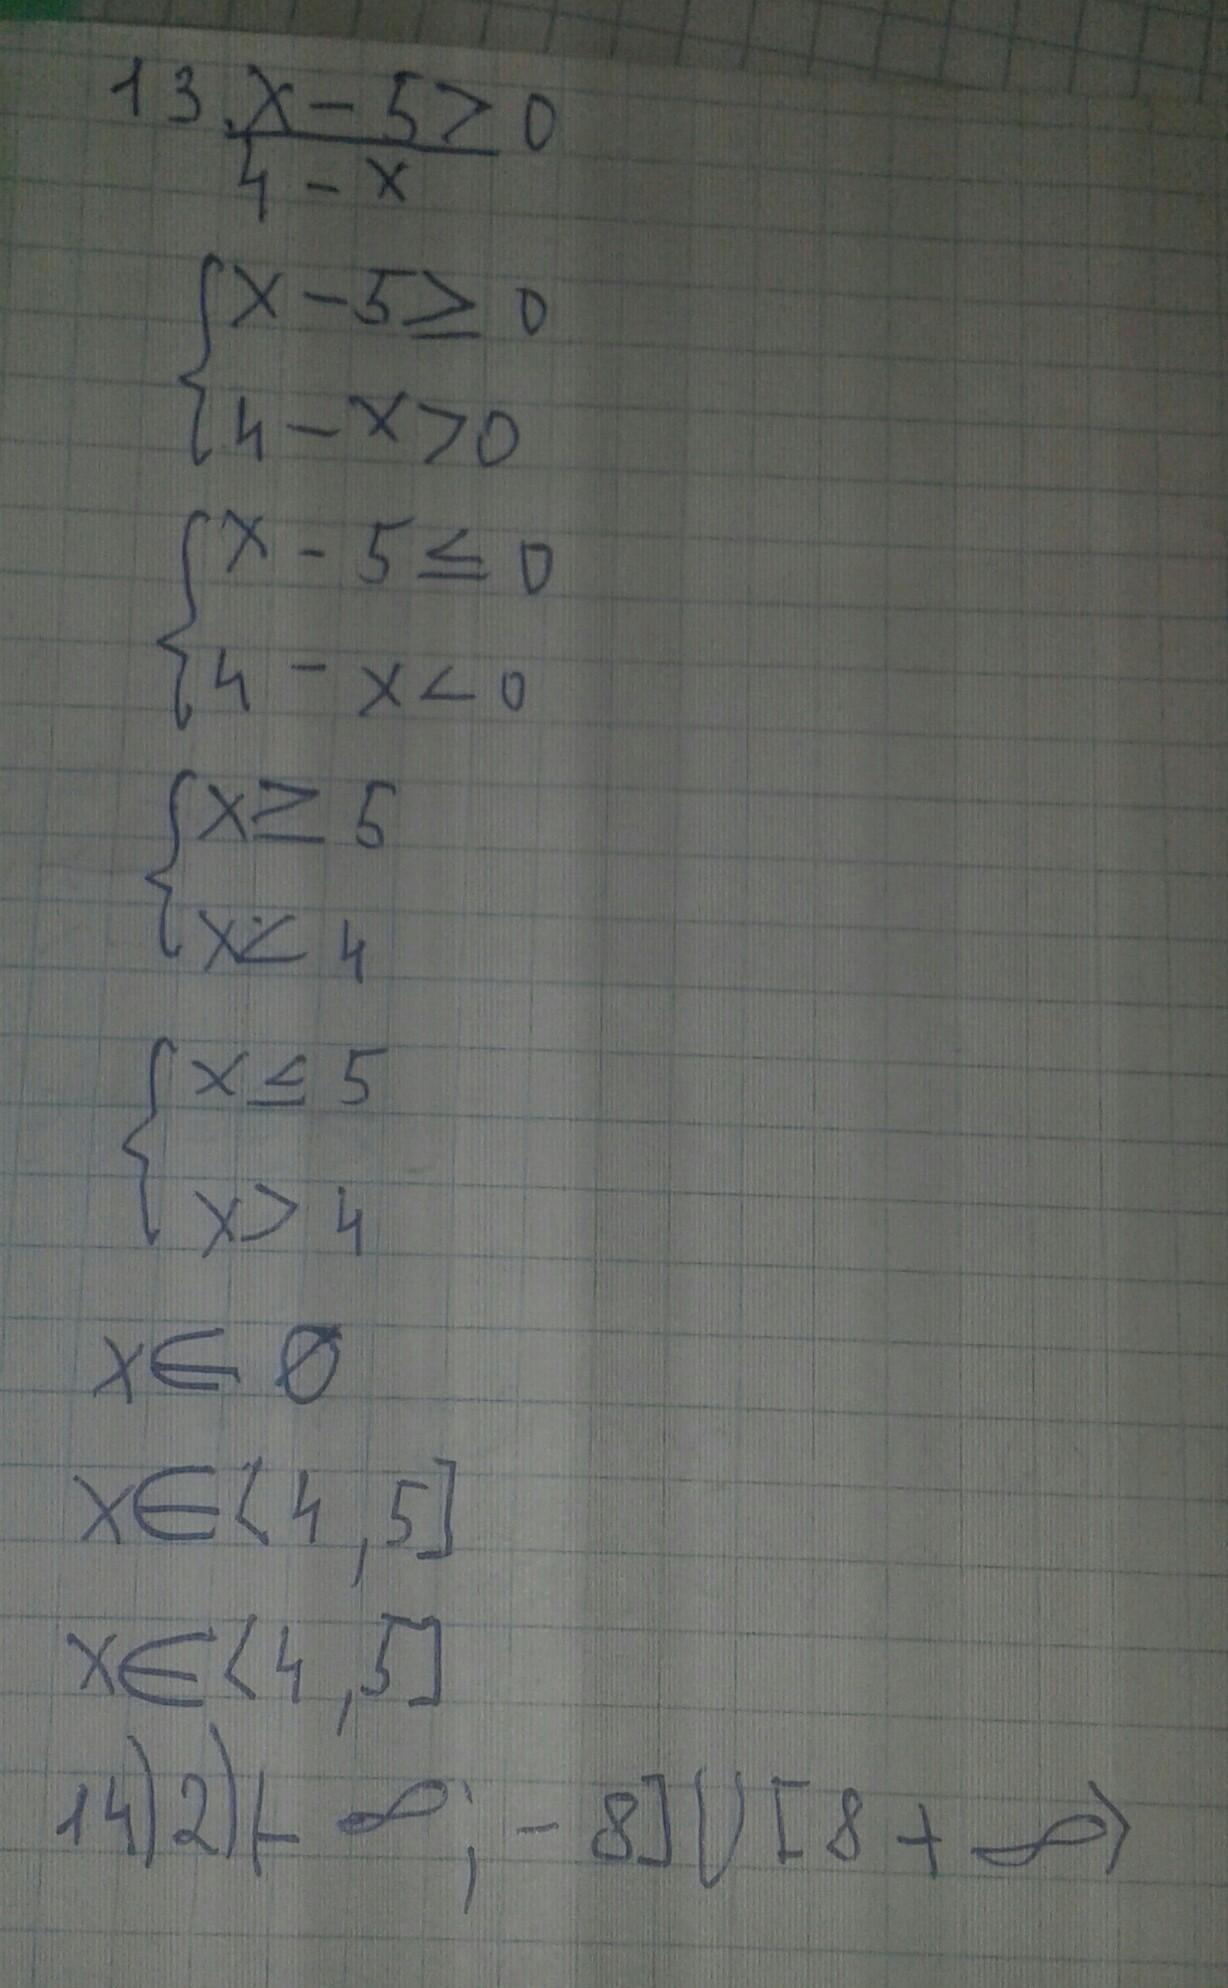 13. x - 5 > 0
4 - x
x - 5 ≥ 0
4 - x > 0
x - 5 ≤ 0
4 - x < 0
x ≥ 5
x < 4
x ≤ 5
x > 4
x ∈ ∅
x ∈ (4, 5]
x ∈ (4, 5]
14) 2) (- ∞; - 8] ∪ [8 + ∞)